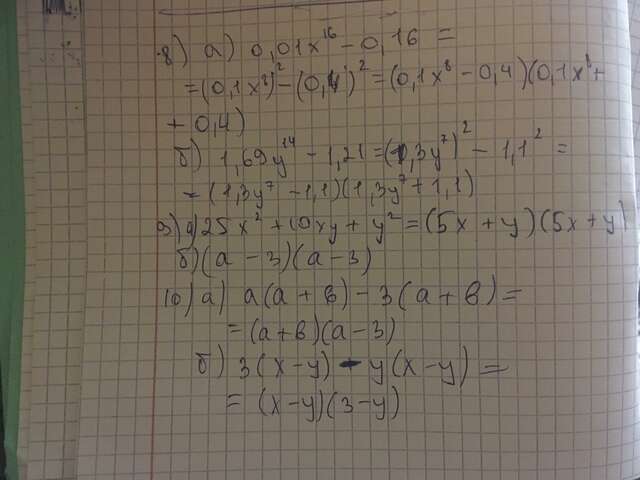 8) а) 0,01x¹⁶ - 0,16 =
= (0,1x⁸)² - (0,4)² = (0,1x⁸ - 0,4)(0,1x⁸ +
+ 0,4)
б) 1,69y¹⁴ - 1,21 = (1,3y⁷)² - 1,1² =
= (1,3y⁷ - 1,1)(1,3y⁷ + 1,1)
9) а) 25x² + 10xy + y² = (5x + y)(5x + y)
б) (a - 3)(a - 3)
10) а) a(a + b) - 3(a + b) =
= (a + b)(a - 3)
б) 3(x - y) - y(x - y) =
= (x - y)(3 - y)